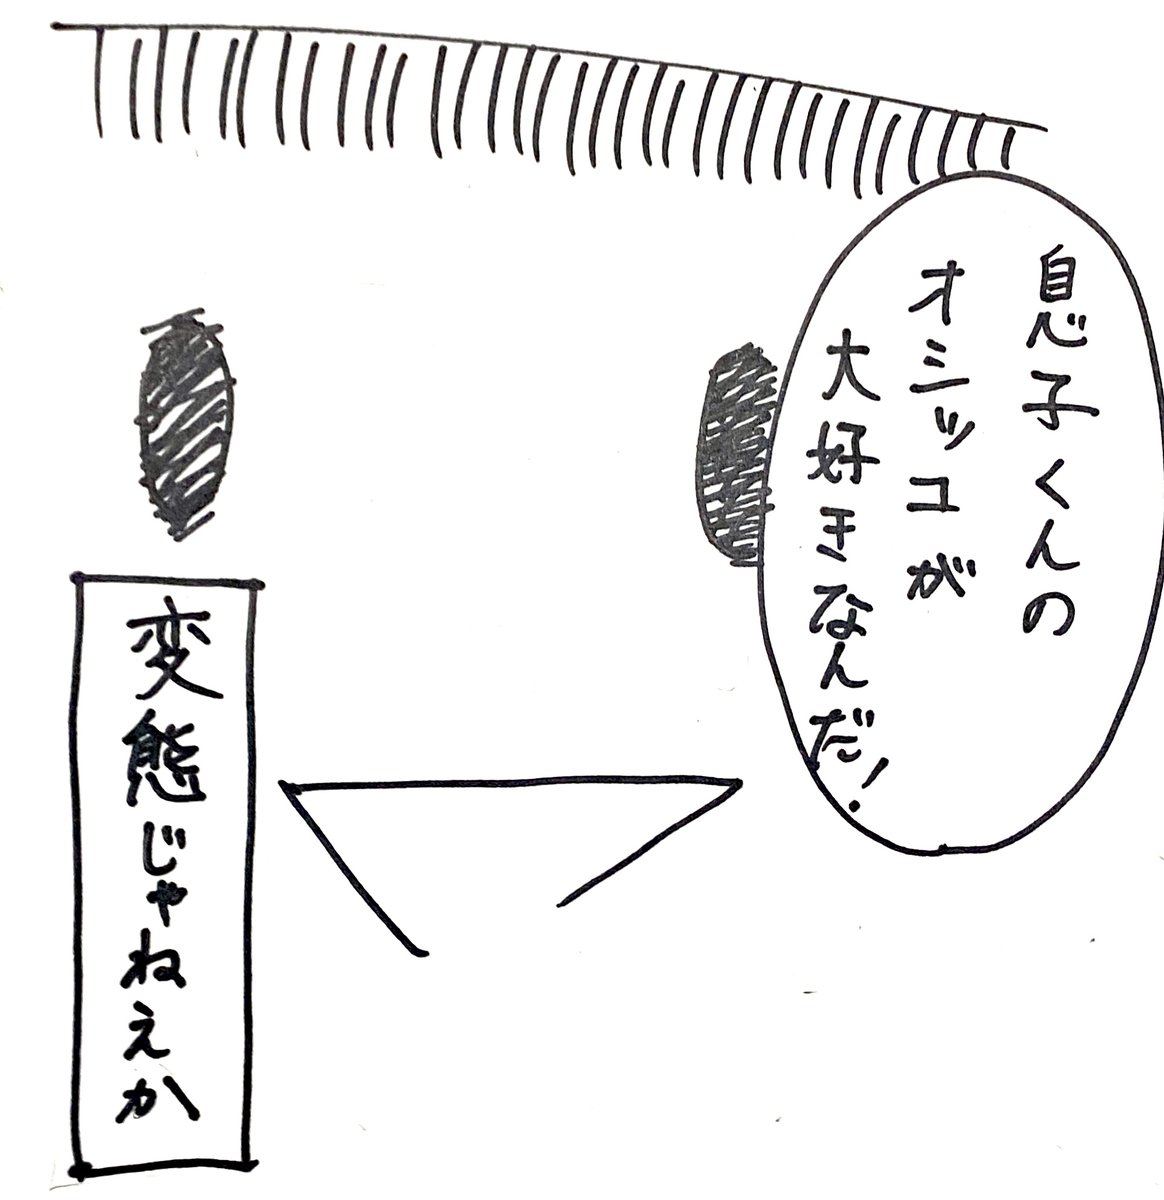 息子くんの
オシッコが
大好きなんだ！
変態じゃねえか